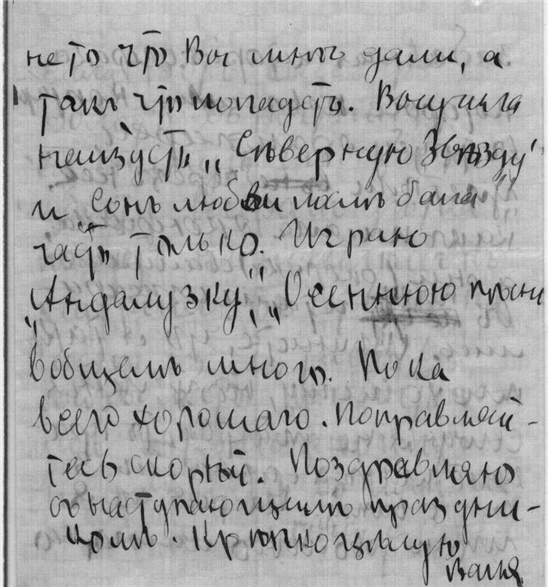 не то что Вы мнѣ дали, а
такъ что попадетъ. Выучила
наизусть „Сѣверную Звѣзду"
и Сонъ любви
часть только. Играю
„Андалузку", „Осеннюю
вобщемъ много. Пока
всего хорошаго. Поправляй-
тесь скорѣй. Поздравляю
съ наступающимъ праздни-
комъ. Крѣпко цѣлую
Валя